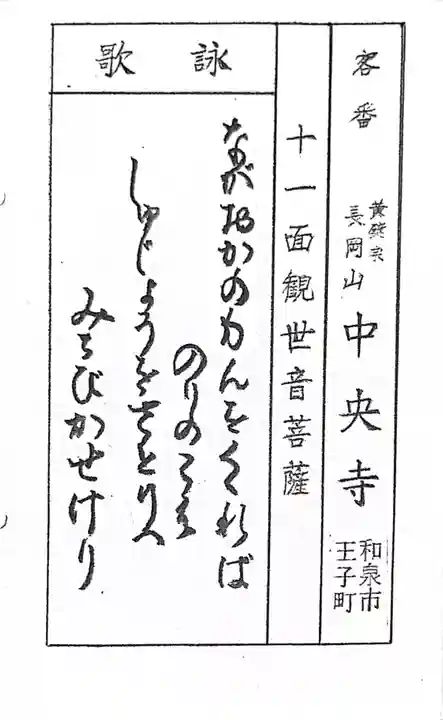 客番
黄檗宗
長岡山 中央寺
和泉市
王子町
十一面観世音菩薩
詠歌
ながおかのもんをくぐれば
のりのこえ
しゅじょうをさとりへ
みちびかせけり